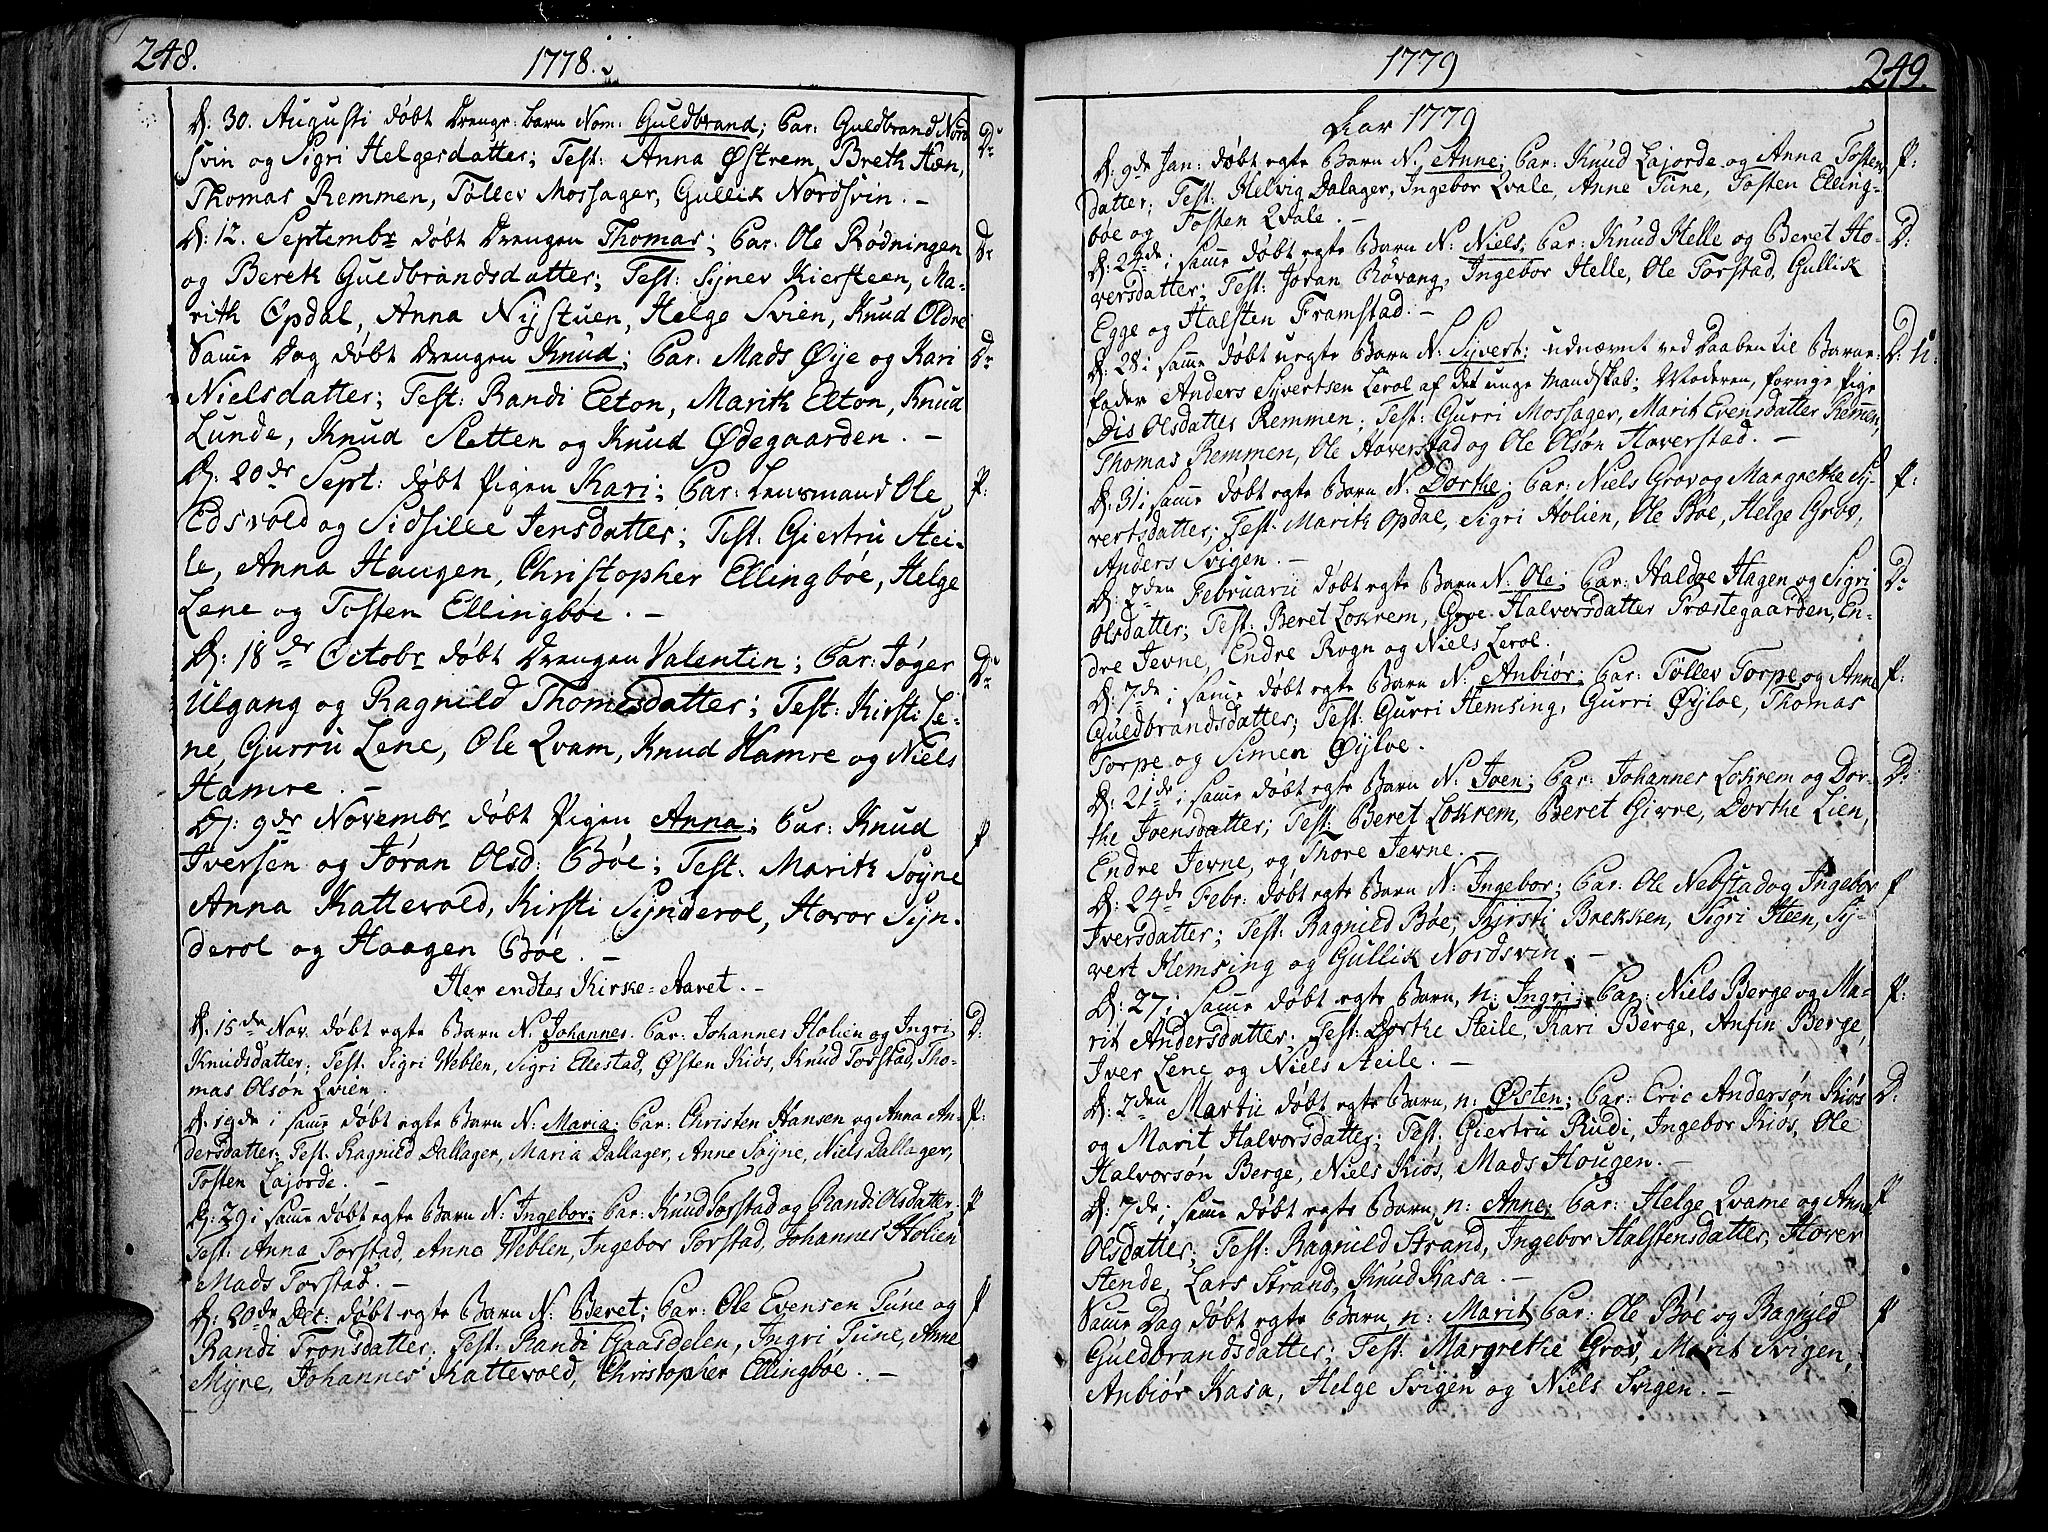 248.
1778.
D: 30. Augusti døbt Drenge-Barn Nom: Guldbrand; Par: Guldbrand Nord
svin og Sigri Helgesdatter; Test: Anna Østrem, Breth Høn,
Thomas Remmen, Tøllev Mossager, Gullik Nordsvin. –
Dr.
D: 12. Septembr døbt Drengen Thomas; Par: Ole Rødningen
og Berek Guldbrandsdatter; Test: Synev Kiersteen, Ma-
rith Opdal, Anna Nystuen, Helge Svien, Knud Oldre
Dr
Samme Dag døbt Drengen Knud; Par: Mads Øye og Kari
Nielsdatter; Test: Randi Elton, Marith Elton, Knud
Lunde, Knud Sletten og Knud Ødegaarden. –
Dr
D: 20de Sept: døbt Pigen Kari; Par: Lensmand Ole
Edsvold og Sidsille Jensdatter; Test: Giertru Stei-
le, Anna Haugen, Christopher Ellingbøe, Helge
Lene og Tosten Ellingbøe. –
P:
D: 18de Octobr døbt Drengen Valentin; Par: Jøger
Ulgang og Ragnild Thomesdatter; Test: Kirsti Le-
ne, Gurru Lene, Ole Qvam, Knud Hamre og Niels
Hamre. –
Dr
D: 9de Novembr døbt Pigen Anna; Par: Knud
Iversen og Jøran Olsd: Bøe; Test: Marith Søyne
Anna Kattevold, Kirsti Synderol, Hovor Syn-
derol og Haagen Bøe. –
P
Her endtes Kirke-Aaret. –
D: 15de Nov. døbt egte Barn N. Johannes. Par: Johannes Holien og Ingri
Knudsdatter; Test: Sigri Weblen, Sigri Ellestad, Østen Kiøs, Knud Torstad, Tho-
mas Olsøn Qvien.
D:
D: 19de i samme døbt egte Barn N: Maria; Par: Christen Hansen og Anna An-
dersdatter; Test: Ragnild Dallager, Maria Dallager, Anne Søyne, Niels Dallager,
Tosten Lajorde. –
P:
D: 29 i samme døbt egte Barn N: Ingebor; Par: Knud Torstad og Randi Olsdatter;
Test: Anna Torstad, Anne Weblen, Ingebor Torstad, Johannes Holien
Mads Torstad. –
P
D: 20de Det: døbt egte Barn N: Beret; Par: Ole Evensen Tune og
Randi Tronsdatter. Test: Randi Gaasdelen, Ingri Tune, Anne
Myre, Johannes Kattevold, Christopher Ellingbøe. –
P
1779
249.
Aar 1779
D: 9de Jan: døbt egte Barn N: Anne; Par: Knud Lajorde og Anna Tosten
datter; Test: Helvig Dalager, Ingebor Qvale, Anne Tune, Tosten Elling-
bøe og Tosten Qvale. –
P:
D: 24de i samme døbt egte Barn N: Niels, Par: Knud Helle og Beret Ho-
versdatter; Test: Jøran Røvang, Ingebor Helle, Ole Torstad, Gullik
Egge og Halsten Framstad. –
D:
D: 28 i samme døbt uegte Barn N: Syvert; udnævnt ved Daaben til Barne-
fader Anders Syvertsen Lerol af det unge Mandskab; Moderen, forrige Pige
Dis Olsdatter Remmen; Test: Gurri Mossager, Marit Evensdatter Remmen,
Thomas Remmen, Ole Hoverstad og Ole Olsøn Hoverstad. –
D: u:
D: 31 i samme døbt egte Barn N: Dorthe; Par: Niels Grov og Margrethe Sy-
vertsdatter; Test: Marith Opdal, Sigri Holien, Ole Bøe, Helge Grov,
Anders Svigen. –
P:
D: 2den Februarii døbt egte Barn N: Ole; Par: Haldoe Hagen og Sigri
Olsdatter; Test: Beret Lokrem, Groe Halvorsdatter Præstegaarden, En-
dre Jevne, Endre Rogn og Niels Lerol.
D:
D: 7de i samme døbt egte Barn N: Anbiør; Par: Tøllev Torpe og Anne
Guldbrandsdatter; Test: Gurri Hemsing, Gurri Øyloe, Thomas
Torpe og Simen Øyloe.
P:
D: 21de i samme døbt egte Barn N: Joen; Par: Johannes Lokrem og Dor-
the Joensdatter; Test: Beret Lokrem, Beret Givre, Dorthe Lien,
Endre Jevne, og Thore Jevne. –
D:
D: 24de Febr: døbt egte Barn N: Ingebor; Par: Ole Nebstad og Ingebor
Iversdatter; Test: Ragnild Bøe, Kirsti Brekken, Sigri Heen, Sy-
vert Hemsing og Gullik Nordsvin. –
P
D: 27 i samme døbt egte Barn, n: Ingri; Par: Niels Berge og Ma-
rit Andersdatter; Test: Dorthe Steile, Kari Berge, Anfin Berge,
Iver Lene og Niels Steile. –
P:
D: 2den Martii døbt egte Barn, n: Østen; Par: Eric Andersøn Kiøs
og Marit Halvorsdatter; Test: Giertru Rudi, Ingebor Kiøs, Ole
Halvorsøn Berge, Niels Kiøs, Mads Hougen. –
D:
D: 7de i samme døbt egte Barn, n: Anne; Par: Helge Qvame og Anne
Olsdatter; Test: Ragnild Strand, Ingebor Halstensdatter, Hover
Stende, Lars Strand, Knud Kasa. –
P
Samme Dag døbt egte Barn, n: Marit; Par: Ole Bøe og Ragnild
Guldbrandsdatter; Test: Margrethe Grov, Marit Svigen,
Anbiør Kasa, Helge Svigen og Niels Svigen. –
P